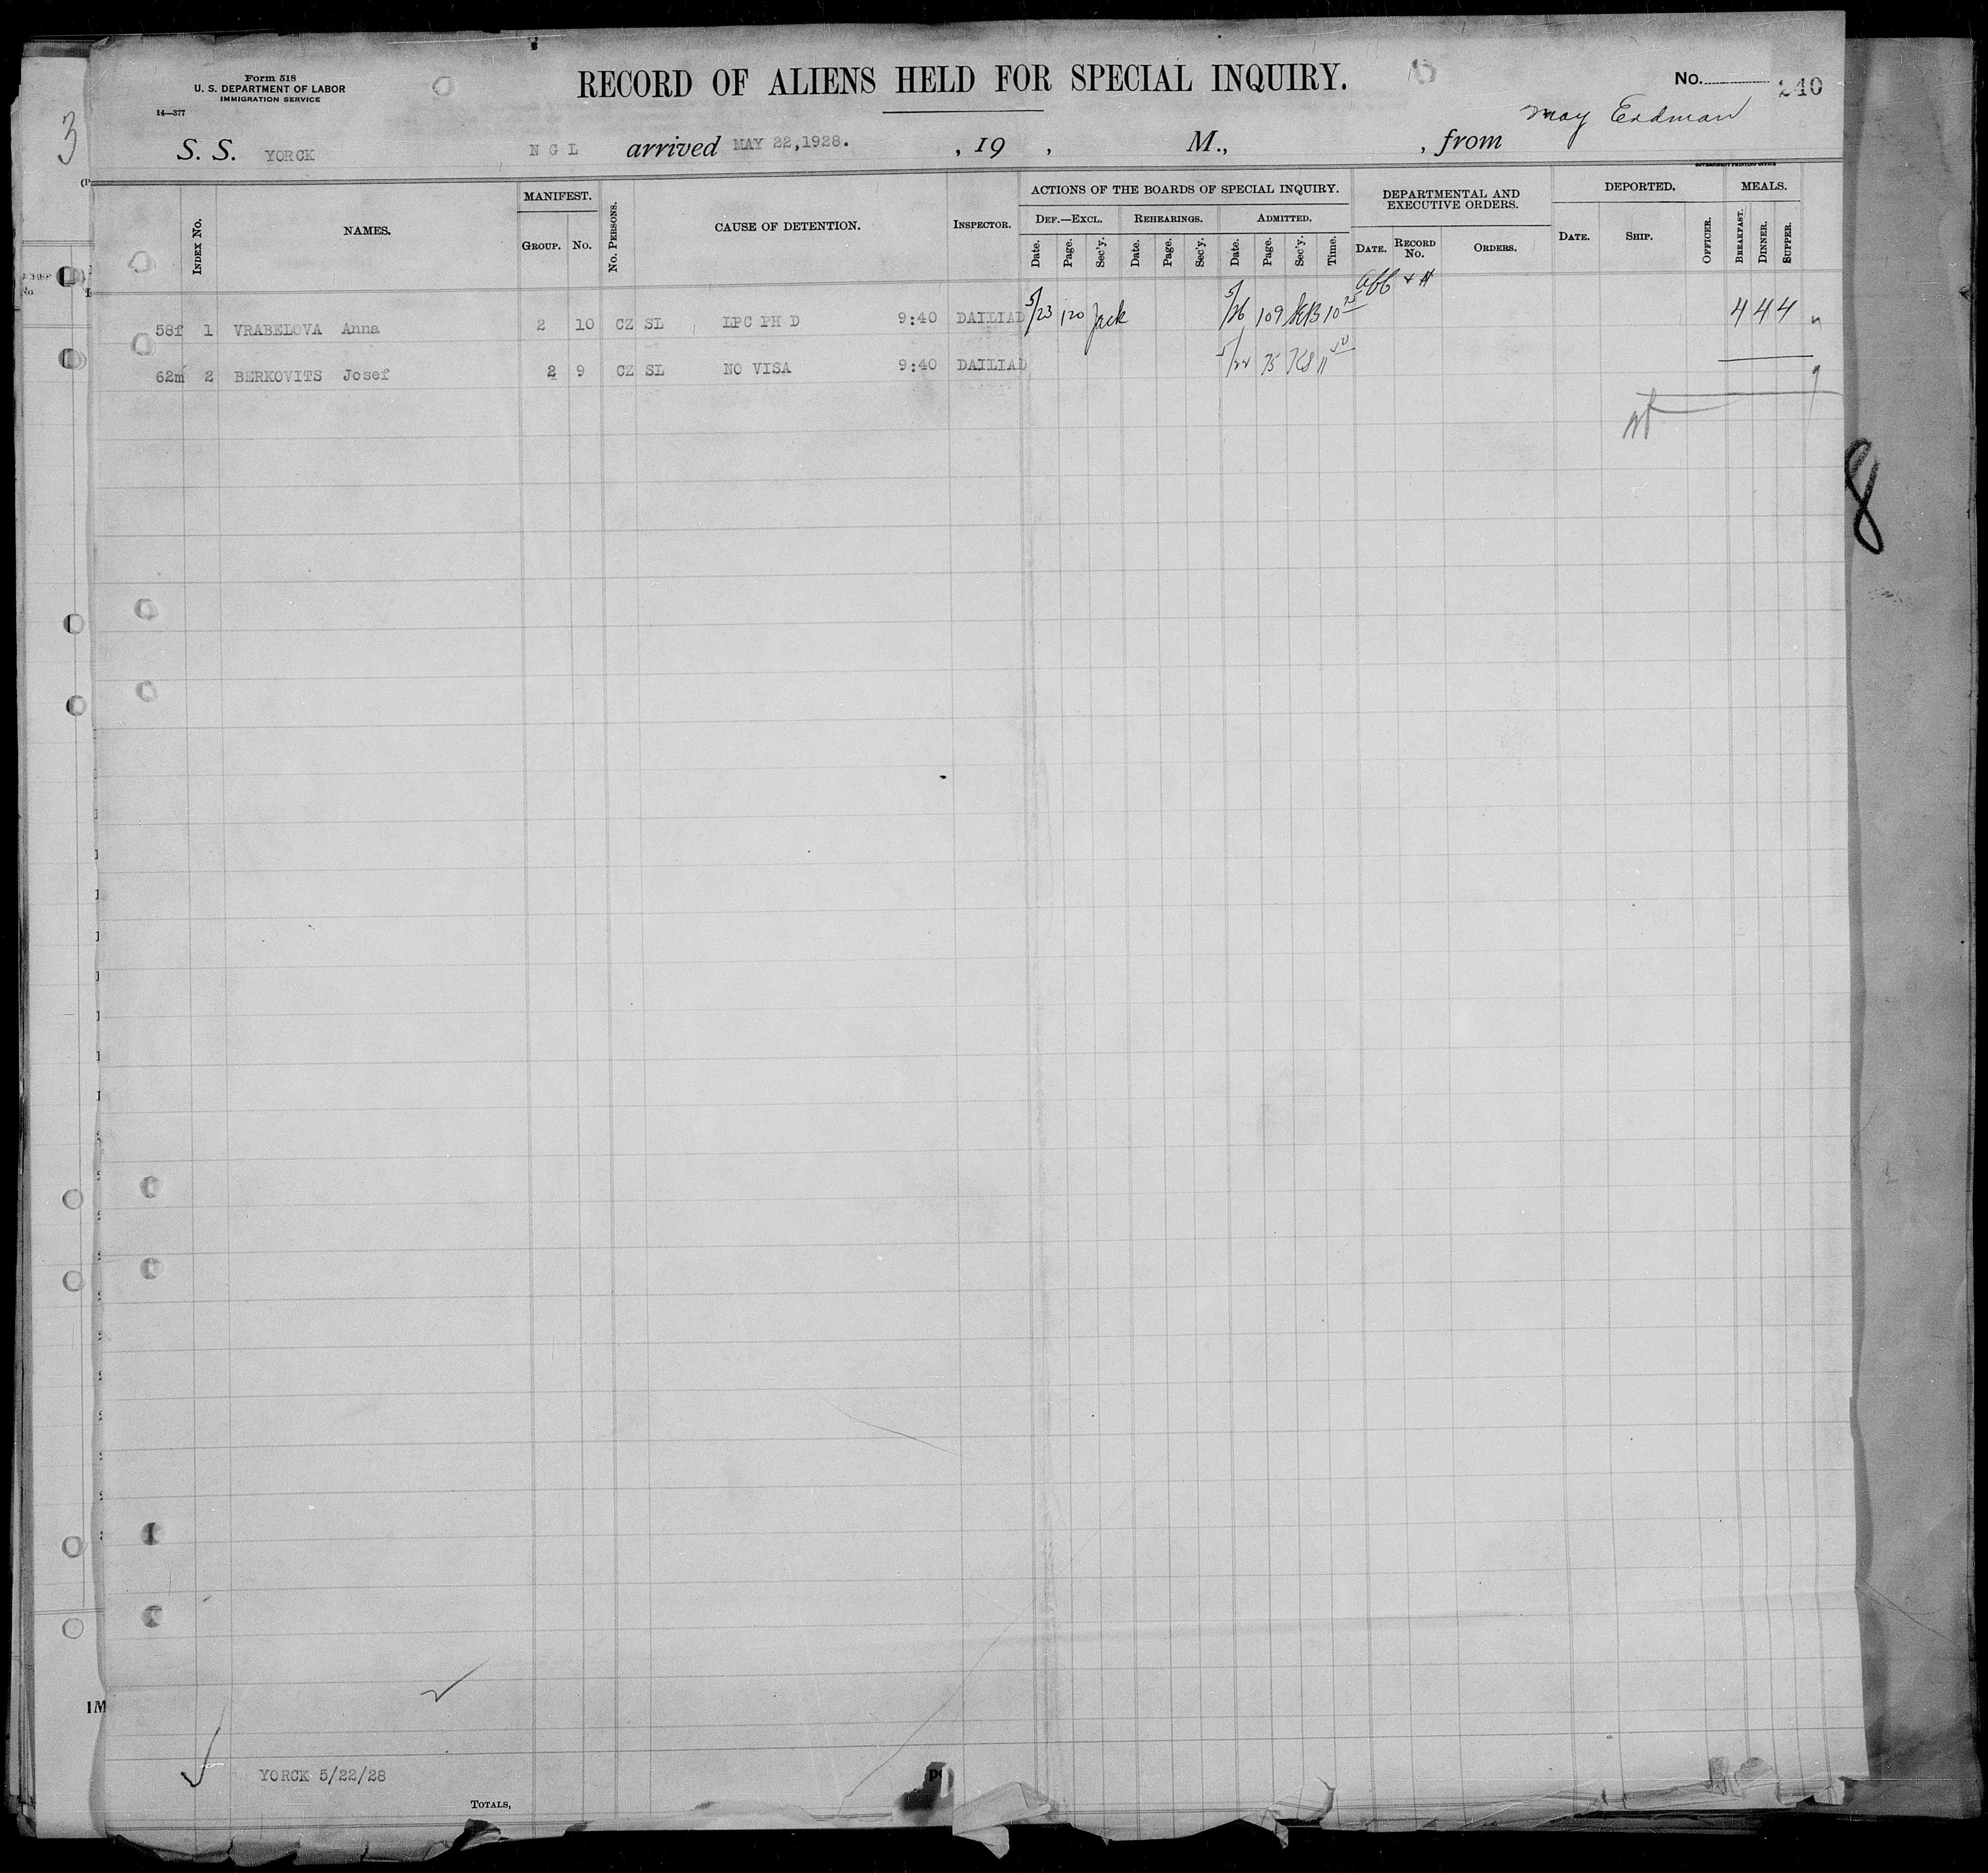 Form 518
U. S. DEPARTMENT OF LABOR
IMMIGRATION SERVICE
14—377
RECORD OF ALIENS HELD FOR SPECIAL INQUIRY.
No. 240
May Erdman
S. S. YORCK N G L arrived MAY 22,1928. , 19 , M., , from
GOVERNMENT PRINTING OFFICE
INDEX No. NAMES. MANIFEST. GROUP. No. No. PERSONS. CAUSE OF DETENTION. INSPECTOR. ACTIONS OF THE BOARDS OF SPECIAL INQUIRY. DEF.—EXCL. Date. Page. Sec'y. REHEARINGS. Date. Page. Sec'y. ADMITTED. Date. Page. Sec'y. Time. DEPARTMENTAL AND EXECUTIVE ORDERS. DATE. RECORD No. ORDERS. DEPORTED. DATE. SHIP. OFFICER. MEALS. BREAKFAST. DINNER. SUPPER.
58f 1 VRABELOVA Anna 2 10 CZ SL LPC PH D 9:40 DAILIAD 5/23 120 Jack 5/26 109 10 25 4 4 4
62m 2 BERKOVITS Josef 2 9 CZ SL NO VISA 9:40 DAILIAD 5/22 75 11
3
8
IM
YORCK 5/22/28
TOTALS,